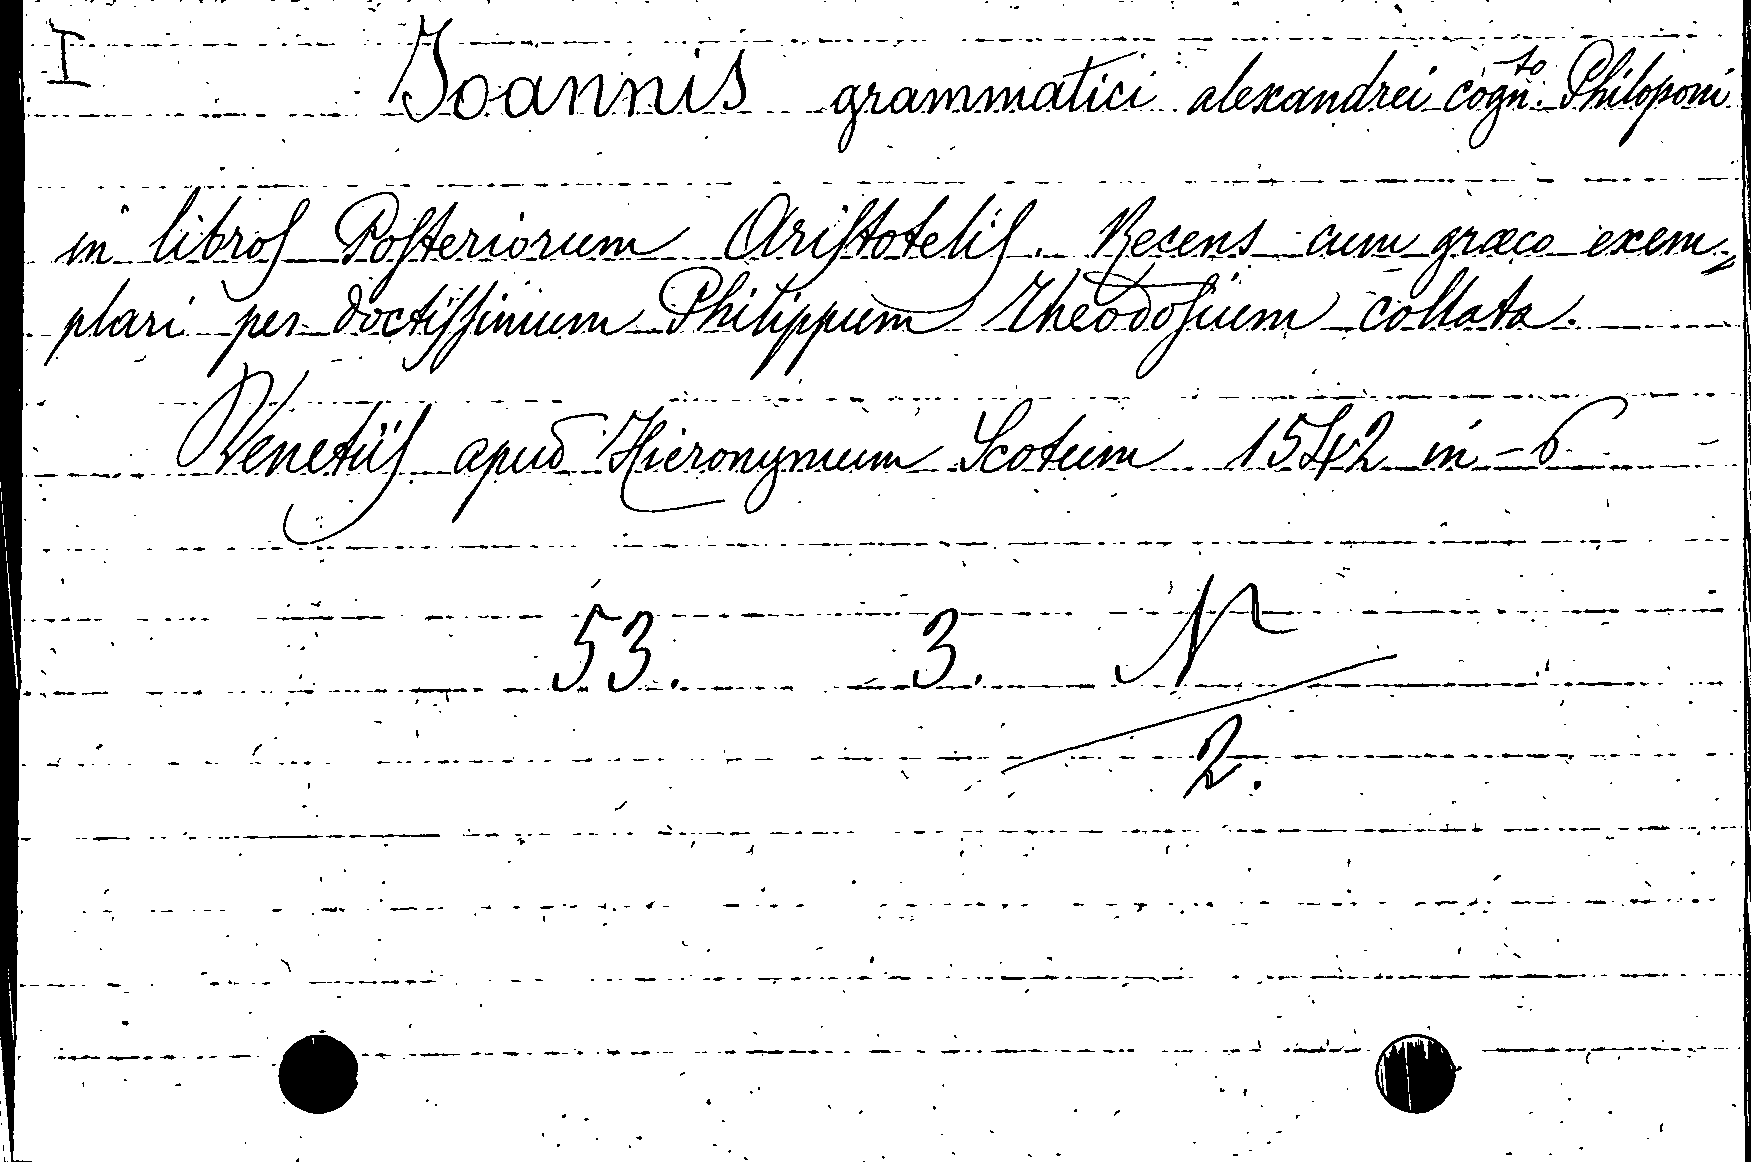 I
Joannis grammatici alexandrei cogñ.to Philoponi
in libros Posteriorum Aristotelis. Recens cum græco exem„
plari per doctissimum Philippum Theodosium collata.
Venetiis apud Hieronymum Scotum 1542 in-6
53. 3. N
2.